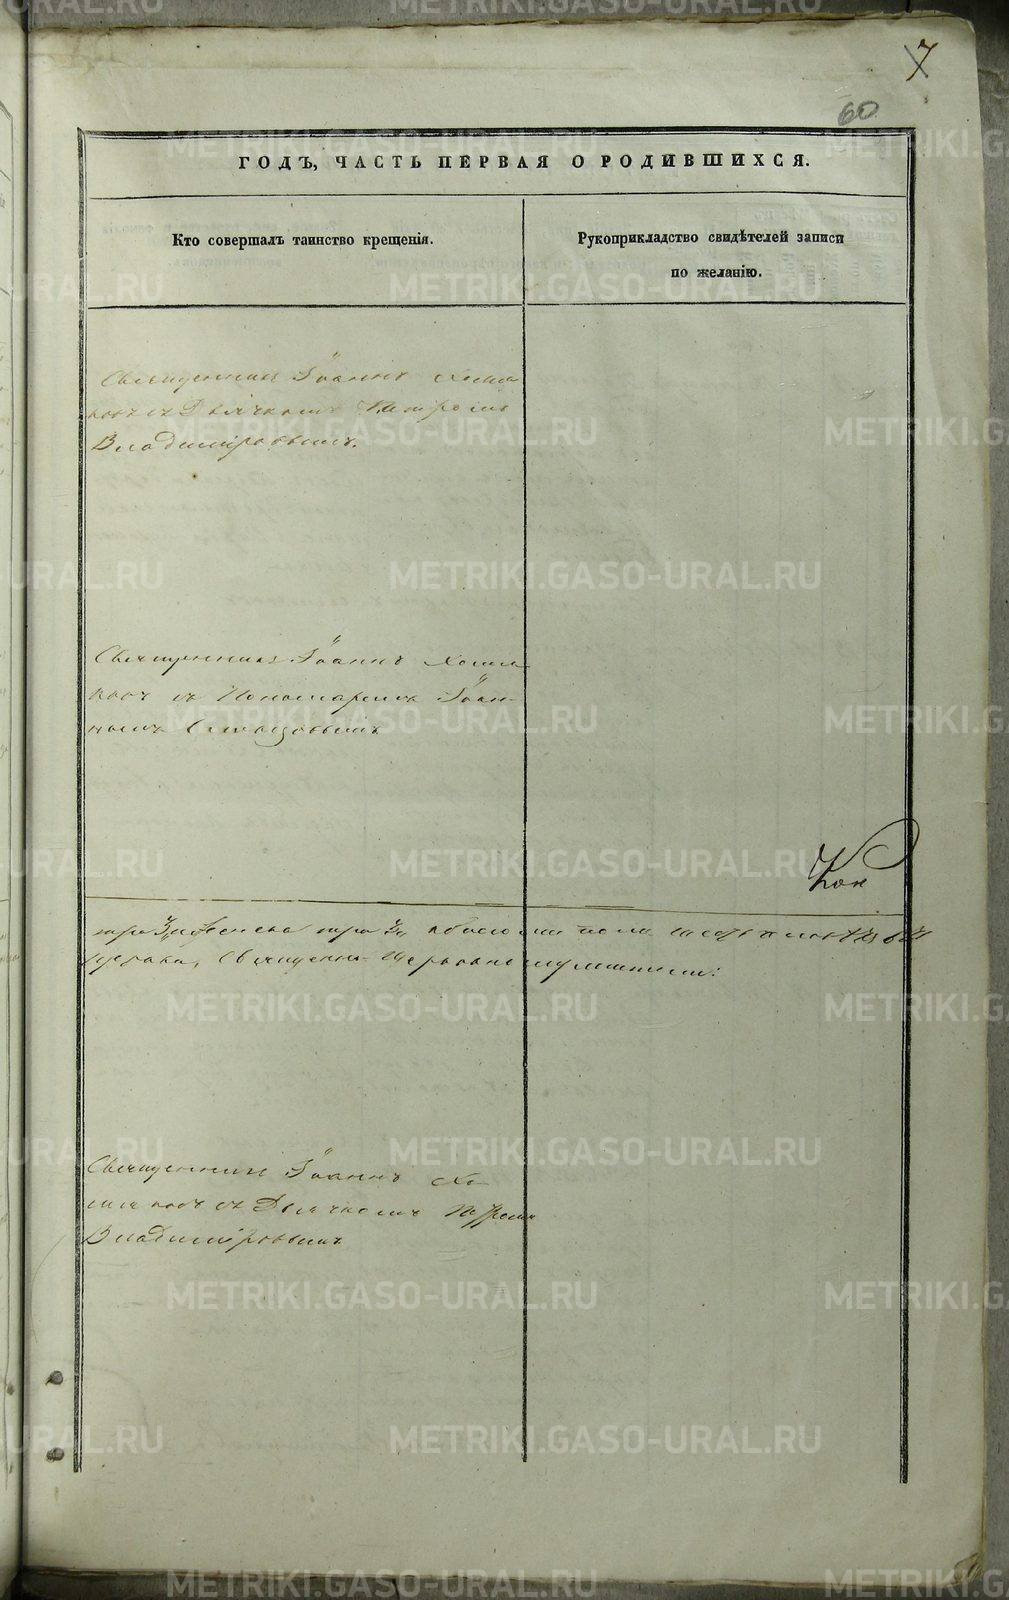 7
60
ГОДЪ, ЧАСТЬ ПЕРВАЯ О РОДИВШИХСЯ.
Кто совершалъ таинство крещенія.
Рукоприкладство свидѣтелей записи
по желанію.
Священникъ Іоаннъ Хомя
ковъ съ Дьячкомъ Петромъ
Владиміровымъ.
Священникъ Іоаннъ Хомя
ковъ съ Пономаремъ Іоан-
номъ
Кон
Священно-Церковнослужители:
Священникъ Іоаннъ Хо
мяковъ съ Дьячкомъ Петромъ
Владиміровымъ
METRIKI.GASO-URAL.RU